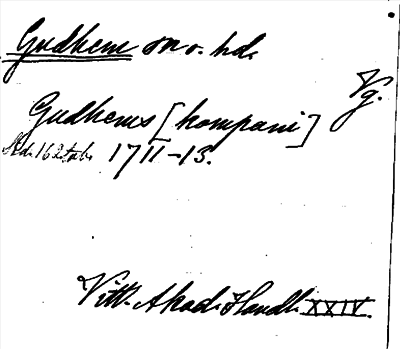 Gudhem sn o. hd.
Vg.
Gudhems [kompani]
1711-13.
Vitt. Akad. Handl. XXIV.